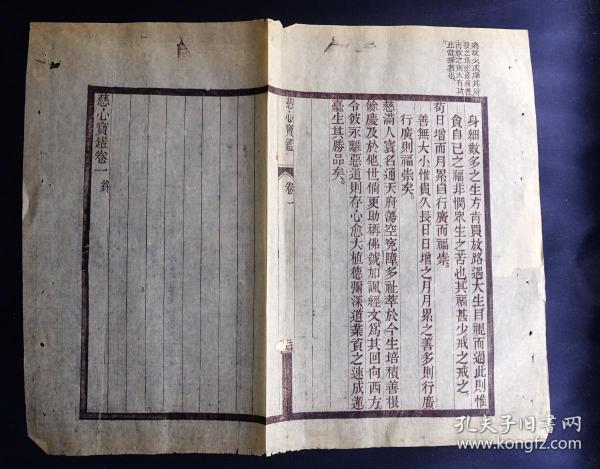 身細數多之生方肯買放路遇大生目視而過此則惟
貪自已之福非憫眾生之苦也其福甚少戒之戒之
苟日增而月累自行廣而福崇
善無大小惟貴久長日日增之月月累之善多則行廣
行廣則福崇矣
慈滿人寰名通天府蕩空冤障多祉萃於今生培積善根
餘慶及於他世倘更助稱佛號加諷經文為其回向西方
令彼永離惡道則存心愈大植德彌深道業資之速成蓮
臺生其勝品矣
慈心寶鑑 卷一
慈心寶鑑卷一終
孔夫子旧书网
www.kongfz.com